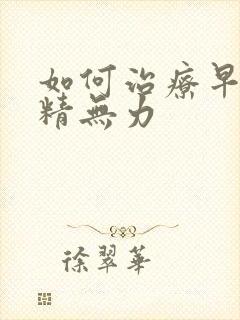 如何治療早
精無力
徐翠華